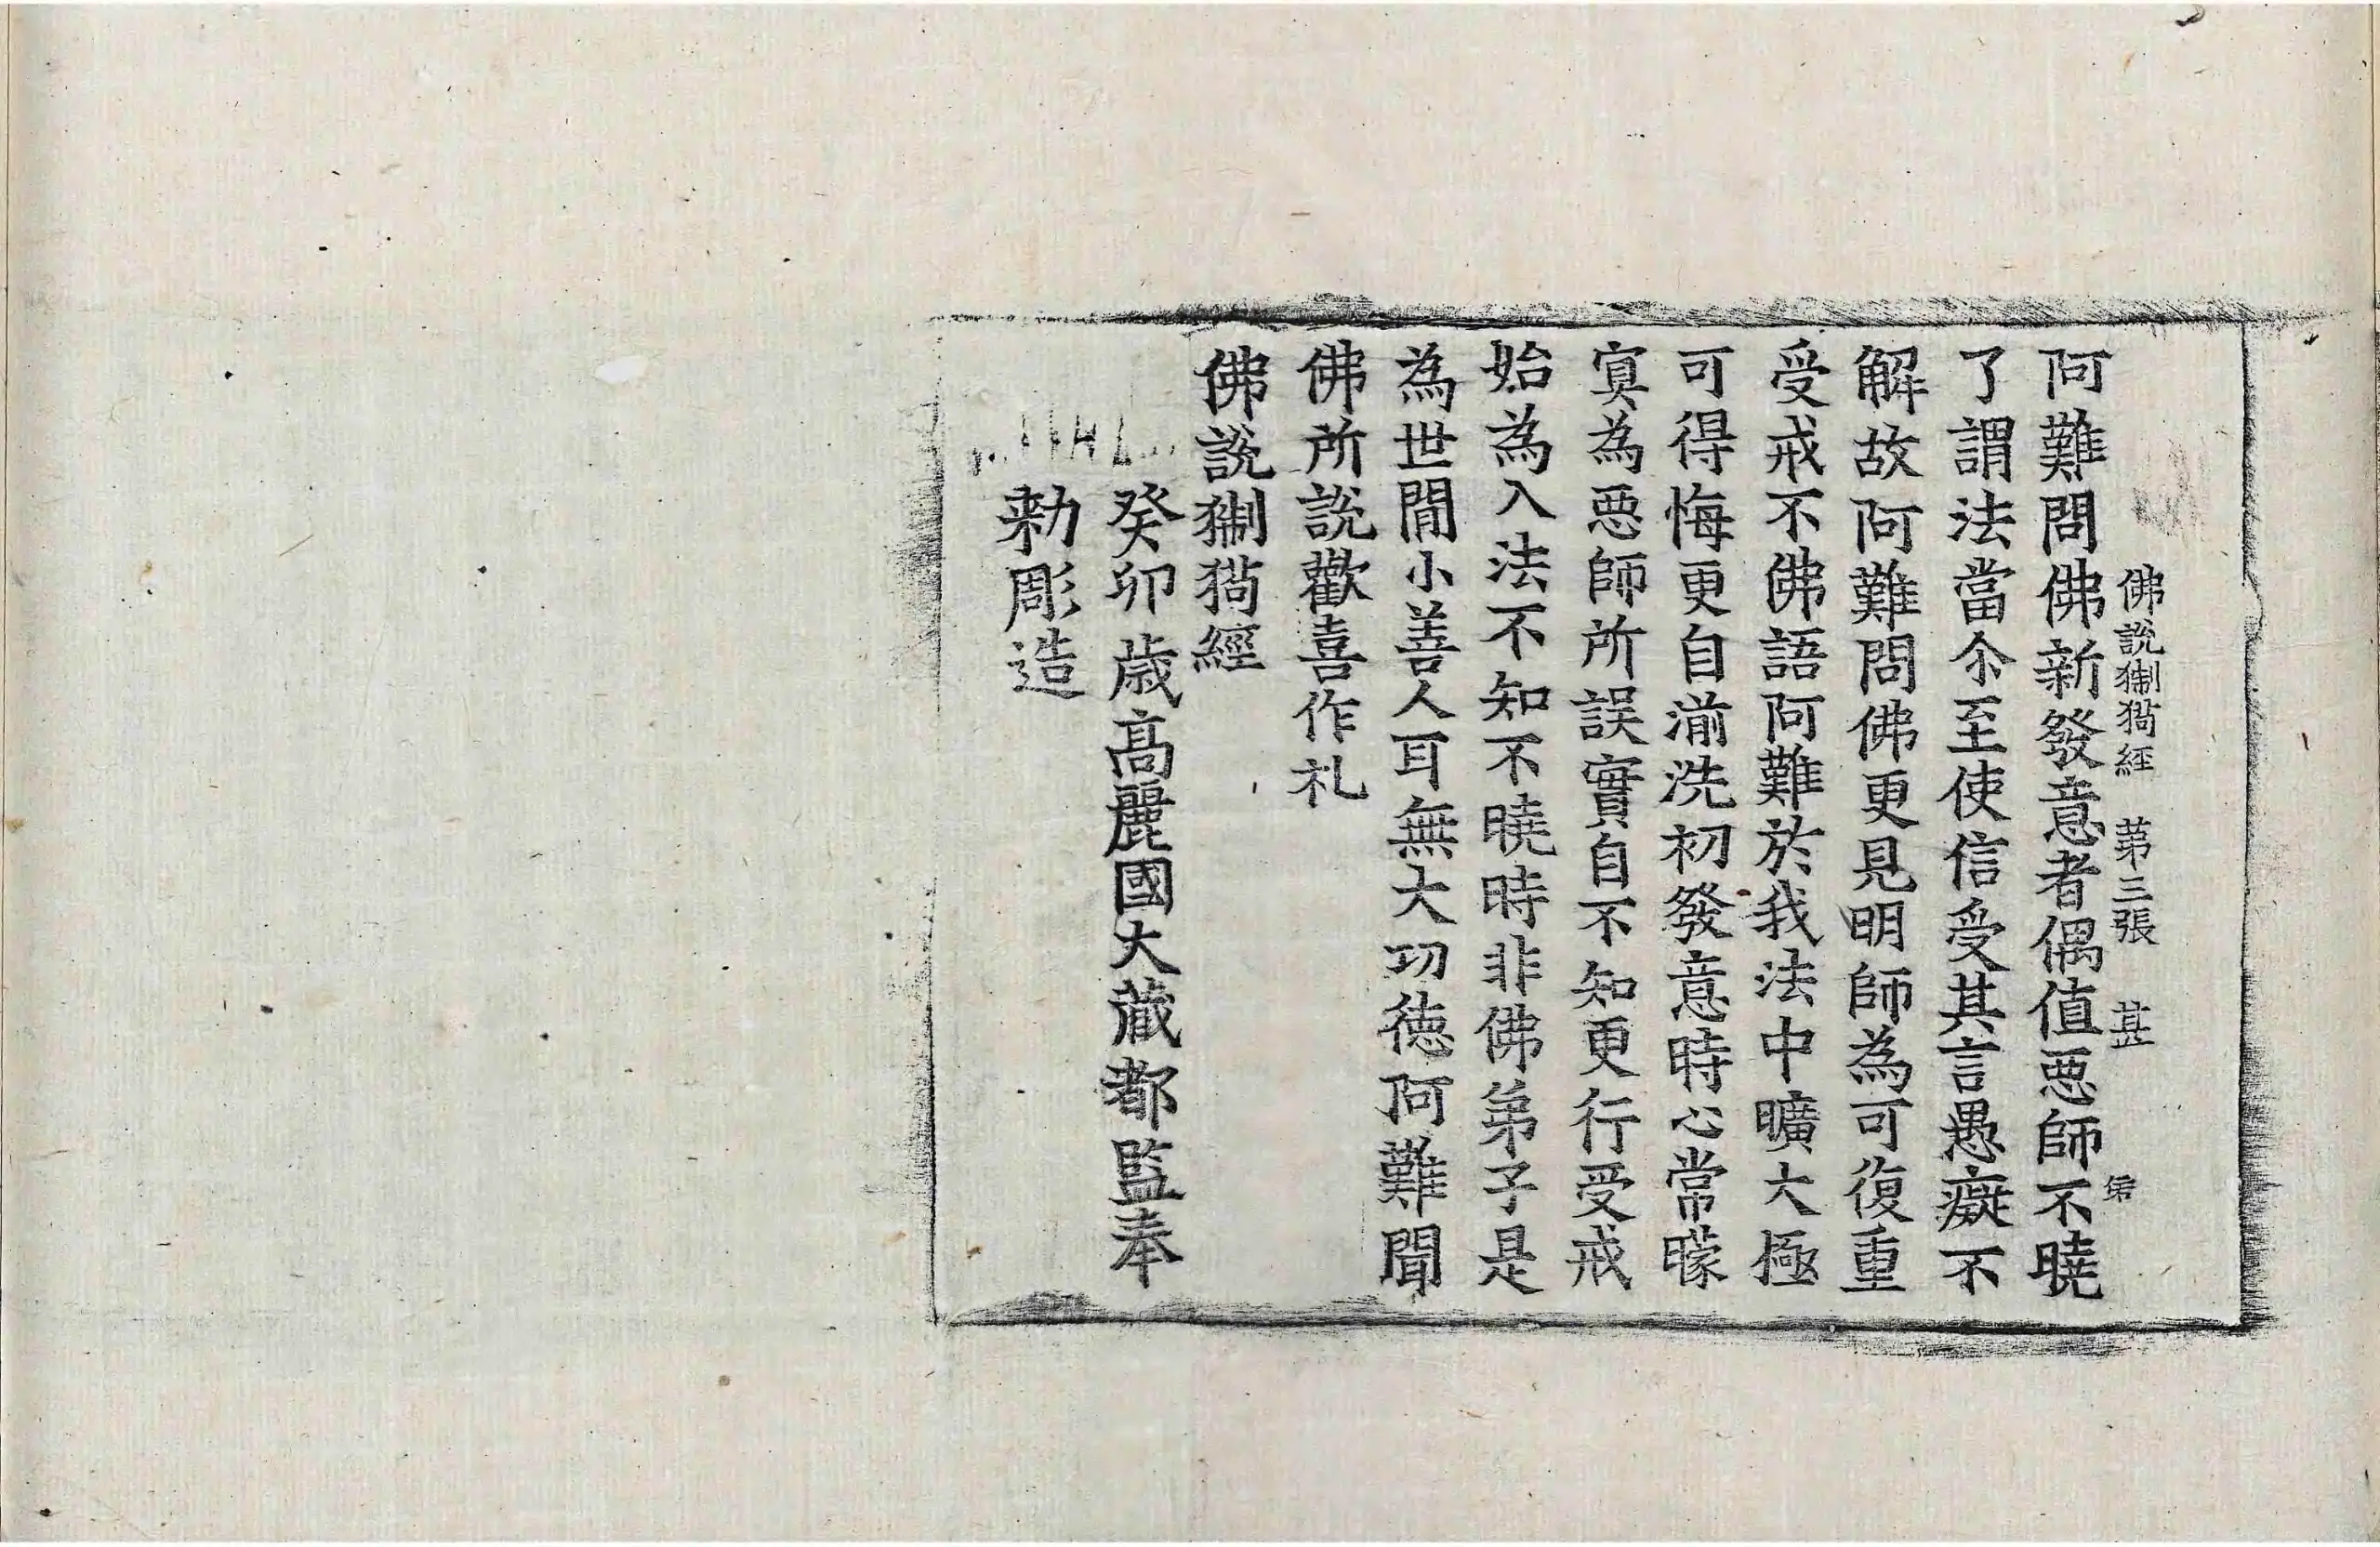 佛說猘狗經 第三張 甚
阿難問佛新發意者偶值惡師不曉
了謂法當尒至使信受其言愚癡不
解故阿難問佛更見明師為可復重
受戒不佛語阿難於我法中曠大極
可得悔更自湔洗初發意時心常曚
寞為惡師所誤實自不知更行受戒
始為入法不知不曉時非佛弟子是
為世閒小善人耳無大功德阿難聞
佛所說歡喜作礼
佛說猘狗經
癸卯歲高麗國大藏都監奉
勑彫造